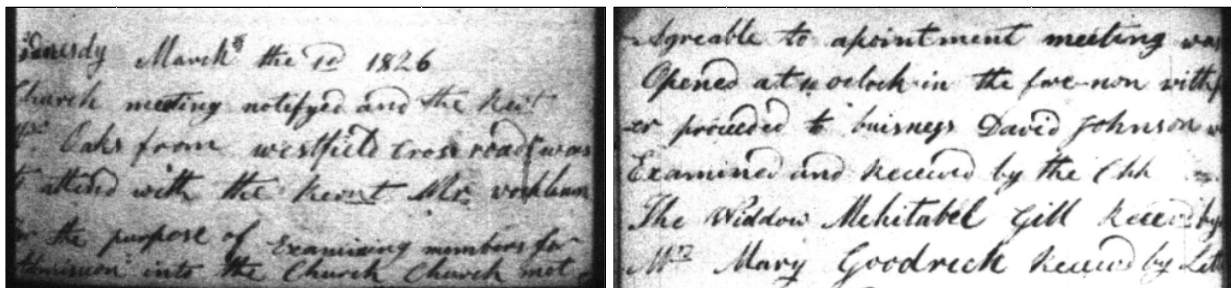 March the 1d 1826
Church meeting notifyed and the Revt
Mr Oaks from westfield Cross roads was
to attend with the Revnt Mr.
for the purpose of Examining members for
Admission into the Church Church met
Agreable to apointment meeting was
Opened at oclock in the fore-non with
er proceeded to buisness David Johnson
Examined and Received by the Chh
The Widdow Mehitabel Gill Receivd by
Mrs Mary Goodrich Receivd by Let